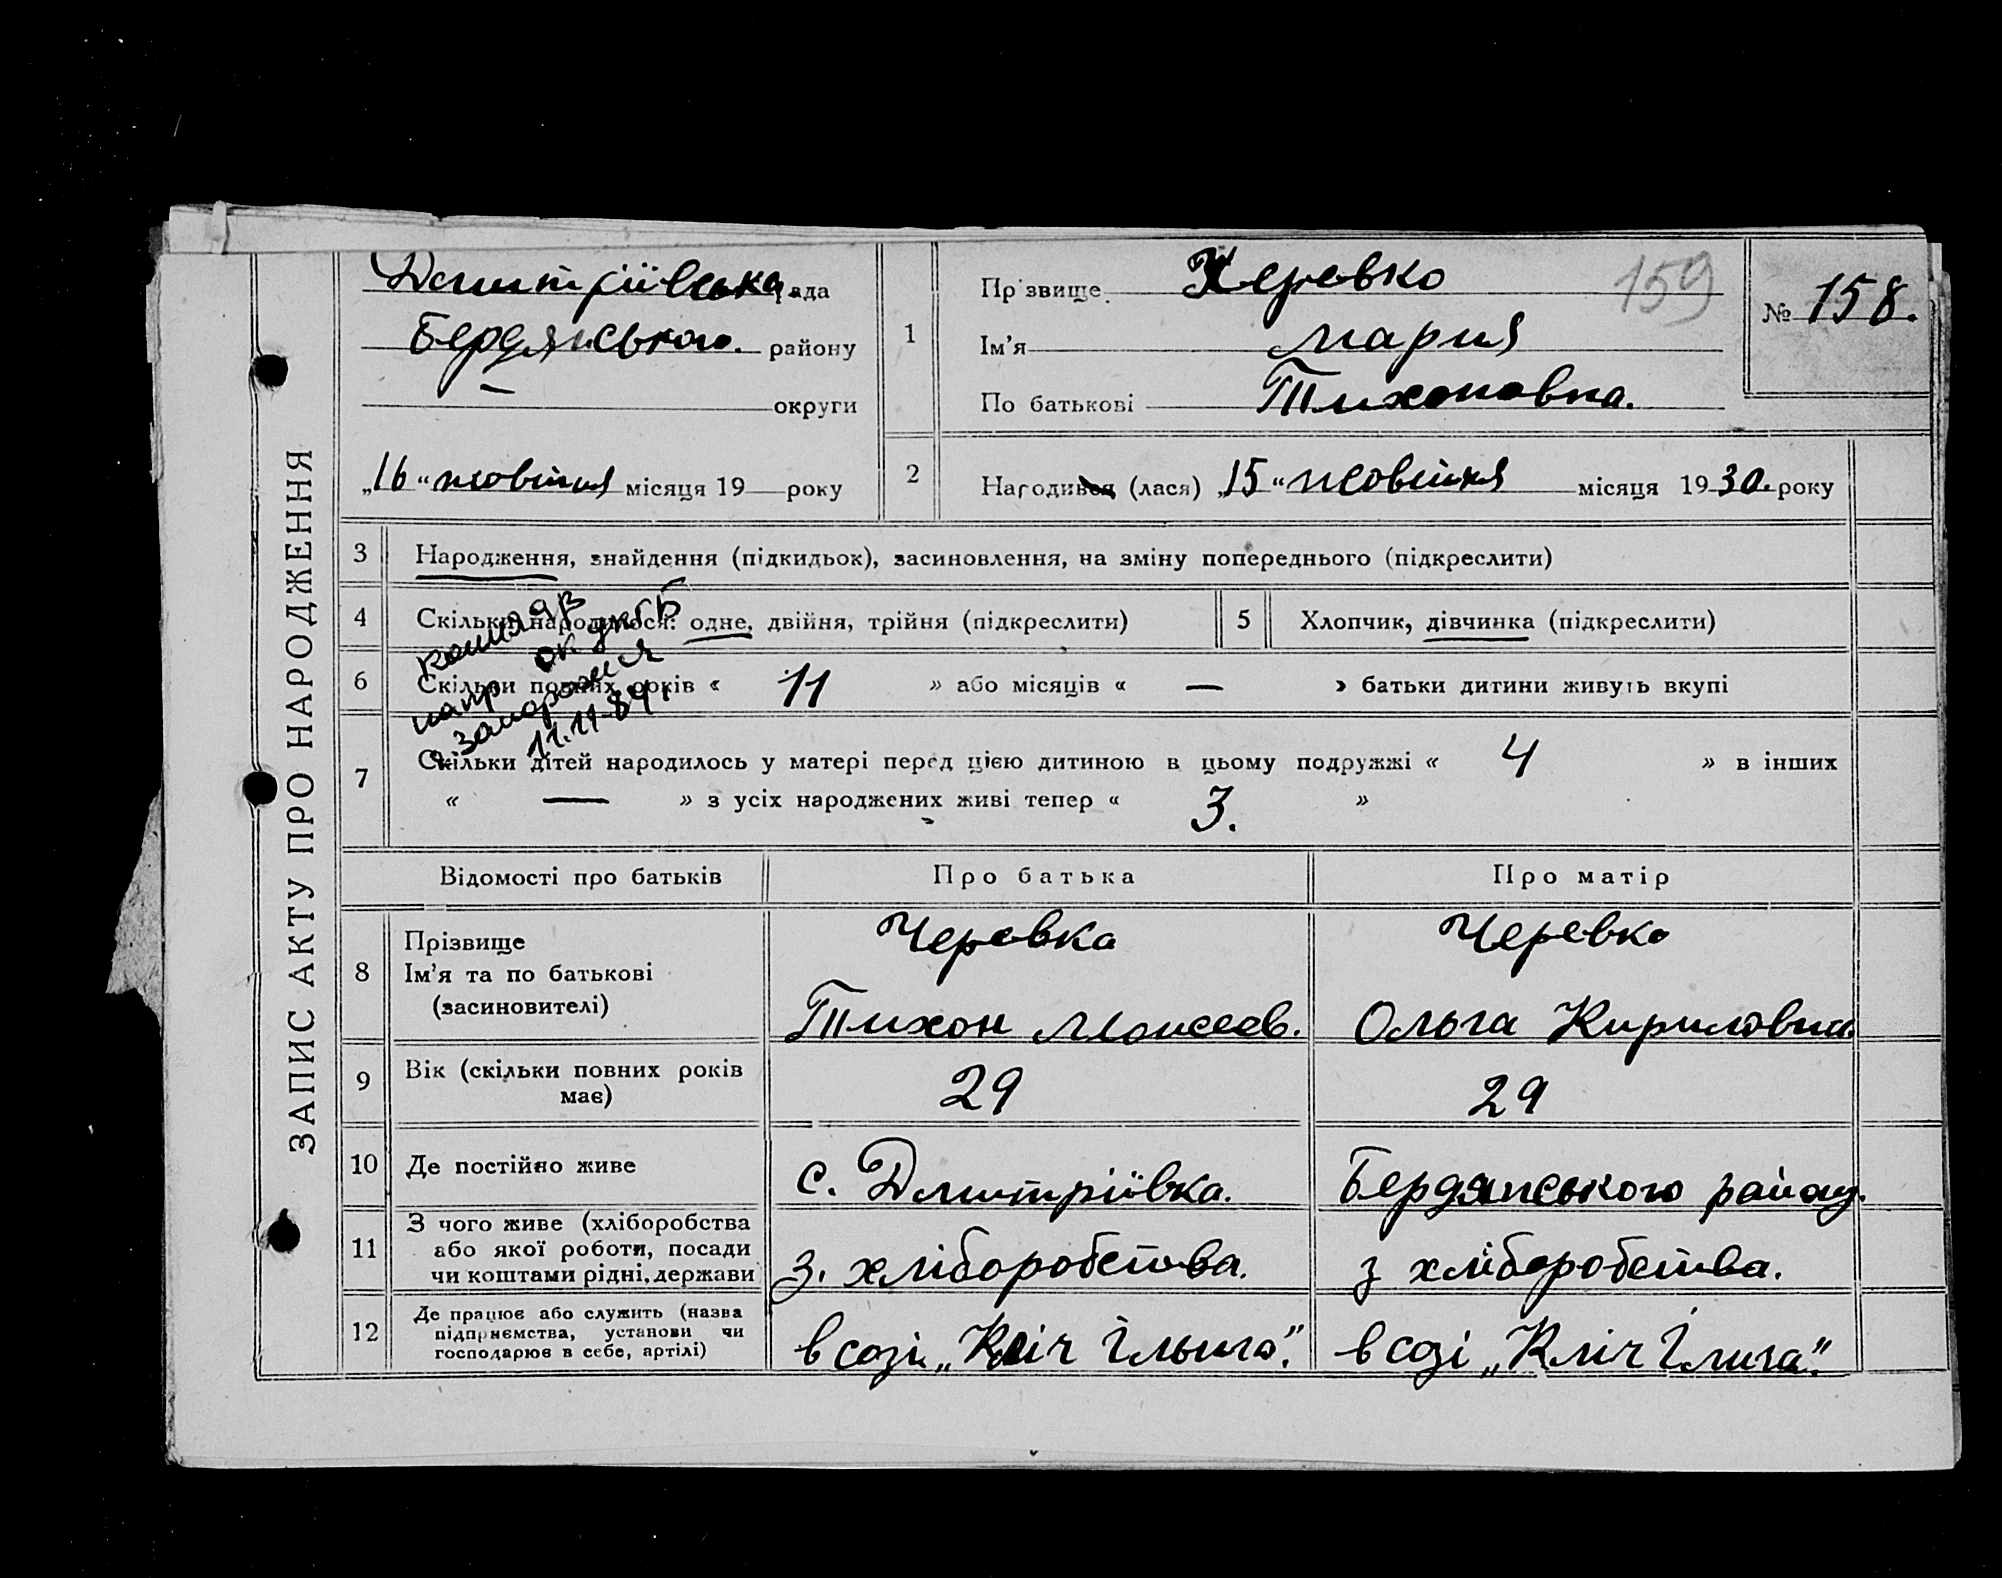 ЗАПИС АКТУ ПРО НАРОДЖЕННЯ
Дмитріївська рада
Бердянського. району
— округи
„16“ жовтня місяця 19 року
1
Прізвище Черевко
159
№ 158.
Ім'я Мария
По батькові Тихоновна.
2
Народився (лася) „15“ жовтня місяця 1930. року
3 Народження, знайдення (підкидьок), засиновлення, на зміну попереднього (підкреслити)
4 Скільки народилося: одне, двійня, трійня (підкреслити)
5 Хлопчик, дівчинка (підкреслити)
6 Скільки повних років « 11 » або місяців « — » батьки дитини живуть вкупі
копия
Запорожья
11.11.84г
7 Скільки дітей народилось у матері перед цією дитиною в цьому подружжі « 4 » в інших
« — » з усіх народжених живі тепер « 3. »
Відомості про батьків Про батька Про матір
8 Прізвище
Ім'я та по батькові
(засиновителі)
Черевка
Тихон Моисеев.
Черевко
Ольга Кириловна
9 Вік (скільки повних років має)
29
29
10 Де постійно живе
с. Дмитріївка.
Бердянського району.
11 З чого живе (хліборобства
або якої роботи, посади
чи коштами рідні, держави
з. хліборобства.
з хліборобства.
12 Де працює або служить (назва
підприємства, установи чи
господарює в себе, артілі)
в созі „Кліч Ільича".
в созі „Кліч Ілича".